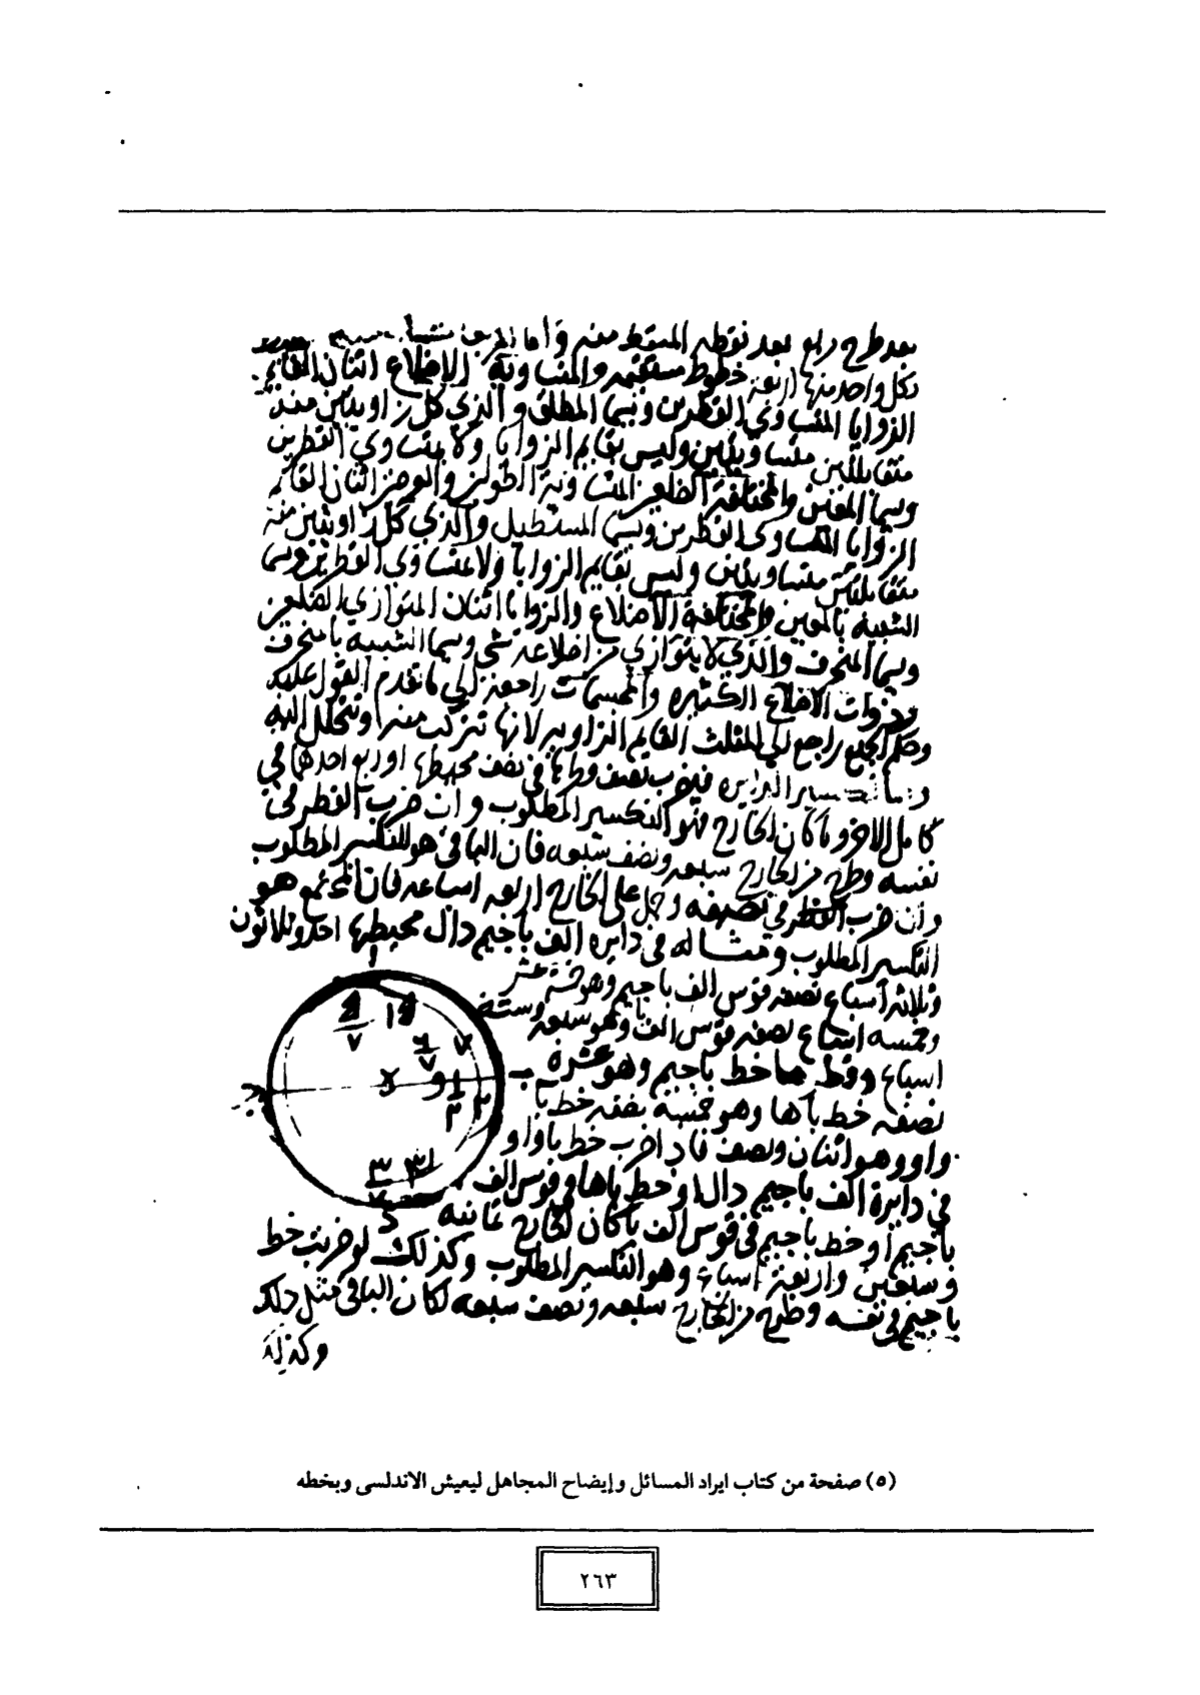 بعد طرح رابع بعد نقطه المسقط منه واما المربع
وكل واحد منها اربعة خطوط مستقيمه والمتساوية الاضلاع اثنان القايم
الزوايا المتساوي القطرين ويسما المطلق والذي كل زاويتين منه
متقابلتين متساويتين وليس بقايم الزوايا ولا بمتساوي القطرين
ويسما المعين والمختلفة الضلعين المتساوية الطولين والعرضين اثنان القايم
الزوايا المتساوي القطرين ويسما المستطيل والذي كل زاويتين منه
متقابلتين متساويتين وليس بقايم الزوايا ولا متساوي القطرين ويسما
الشبيه بالمعين والمختلفة الاضلاع والزوايا اثنان المتوازي الضلعين
ويسما المنحرف والذي لا يتوازي من اضلاعه شي ويسما الشبيه بالمنحرف
وذوات الاضلاع الكثيره والمجسمات راجعة الي ما تقدم القول عليه
وحكم الجميع راجع الي المثلث القايم الزاويه لانها تتركب منه او تتحلل اليه
الدايره فيضرب نصف قطرها في نصف محيطها او ربع احدهما في
كامل الاخر وما كان الخارج فهو التكسير المطلوب وان ضرب القطر في
نفسه وطرح من الخارج سبعه ونصف سبعه فان الباقي هو التكسير المطلوب
وان ضرب القطر في نصفه وحمل على الخارج اربعه اسباعه فان المجتمع هو
التكسير المطلوب ومثاله في دايره الف باجيم دال محيطها احد وثلاثون
وثلاثه اسباع نصفه قوس الف باجيم وهو خمسة عشر
وخمسه اسباع نصفه قوس الف با وهو سبعه وستة
اسباع وقطرها خط باجيم وهو عشره
نصفه خط باها وهو خمسة نصفه خط با
واو وهو اثنان ونصف فاذا ضرب خط باواو
في دايرة الف باجيم دال او خط باها في قوس الف
باجيم او خط باجيم في قوس الف با كان الخارج ثمانيه
وسبعين واربعة اسباع وهو التكسير المطلوب وكذلك لو ضربت خط
باجيم في نفسه وطرح من الخارج سبعه ونصف سبعه لكان الباقي مثل ذلك
وكذلك
(٥) صفحة من كتاب ايراد المسائل وإيضاح المجاهل ليعيش الاندلسى وبخطه
٢٦٣